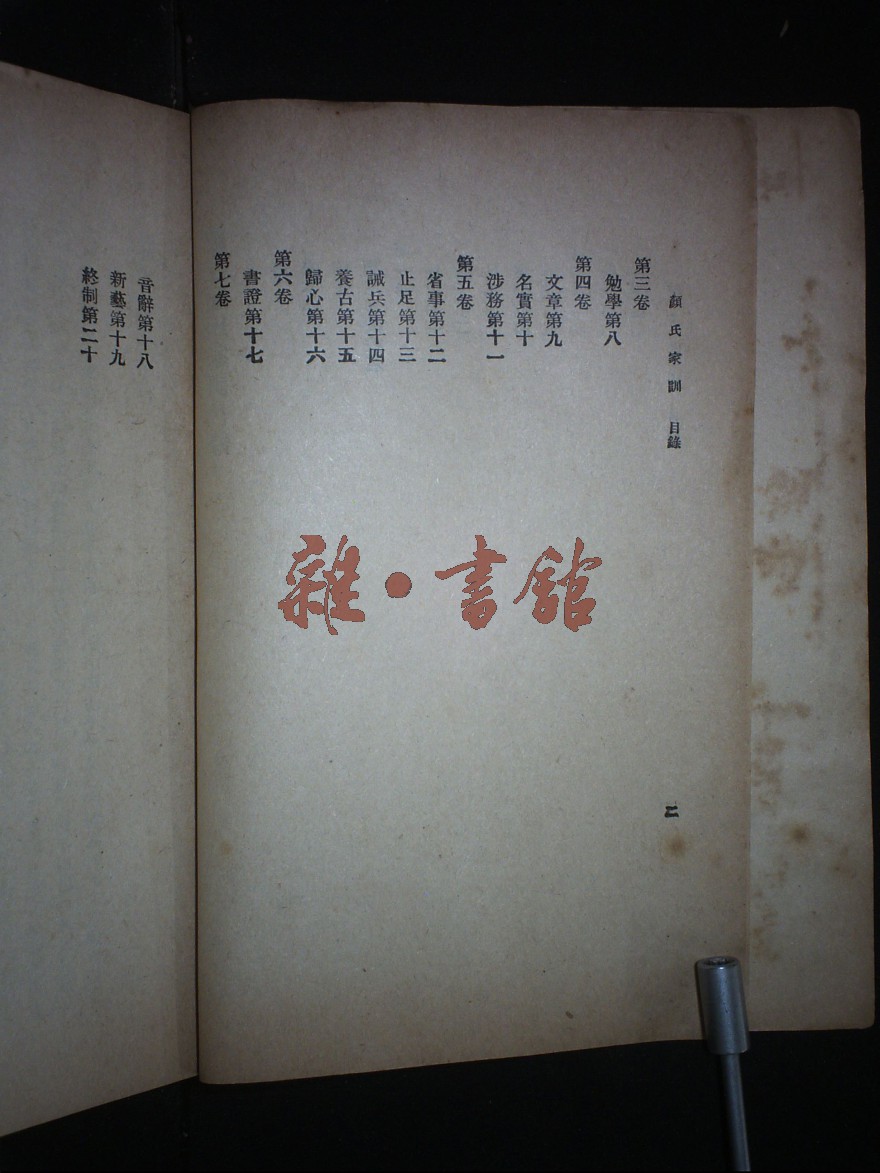 顏氏家訓 目錄
二
第三卷
勉學第八
第四卷
文章第九
名實第十
涉務第十一
第五卷
省事第十二
止足第十三
誡兵第十四
養古第十五
歸心第十六
第六卷
書證第十七
第七卷
音辭第十八
新藝第十九
終制第二十
雜·書館